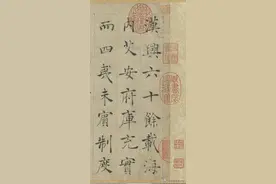 漢興六十餘載海
內艾安府庫充實
而四夷未賓制度